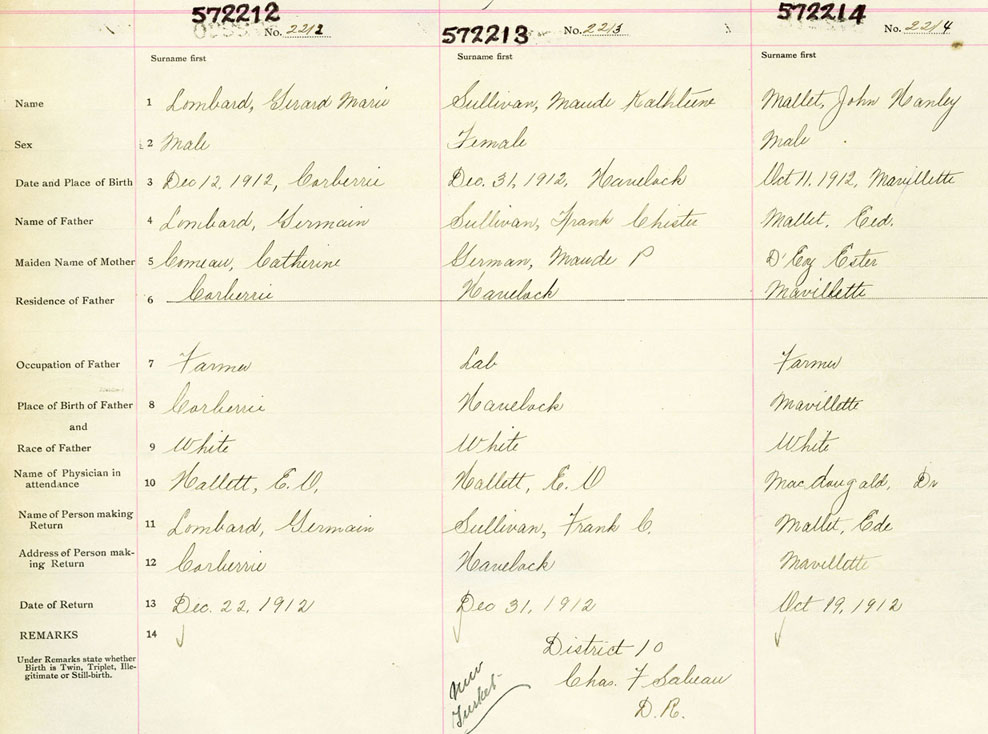 572212 572213 572214
No. 2212 No. 2213 No. 2214
Surname first Surname first Surname first
Name 1 Lombard, Gerard Marie Sullivan, Maude Kathleene Mallet, John Hanley
Sex 2 Male Female Male
Date and Place of Birth 3 Dec 12, 1912, Corberrie Dec. 31, 1912, Havelock Oct 11, 1912, Mavillette
Name of Father 4 Lombard, Germain Sullivan, Frank Chister Mallet, Eed.
Maiden Name of Mother 5 Comeau, Catherine German, Maude P D'Eoy Ester
Residence of Father 6 Corberrie Havelock Mavillette
Occupation of Father 7 Farmer Lab Farmer
Place of Birth of Father 8 Corberrie Havelock Mavillette
and
Race of Father 9 White White White
Name of Physician in
attendance 10 Hallett, E. O. Hallett, E. O Macdougald, Dr
Name of Person making
Return 11 Lombard, Germain Sullivan, Frank C. Mallet, Ede
Address of Person mak-
ing Return 12 Corberrie Havelock Mavillette
Date of Return 13 Dec. 22, 1912 Dec 31, 1912 Oct 19, 1912
REMARKS 14
Under Remarks state whether
Birth is Twin, Triplet, Ille-
gitimate or Still-birth.
District 10
New
Tusket
Chas. F Sabeau
D. R.